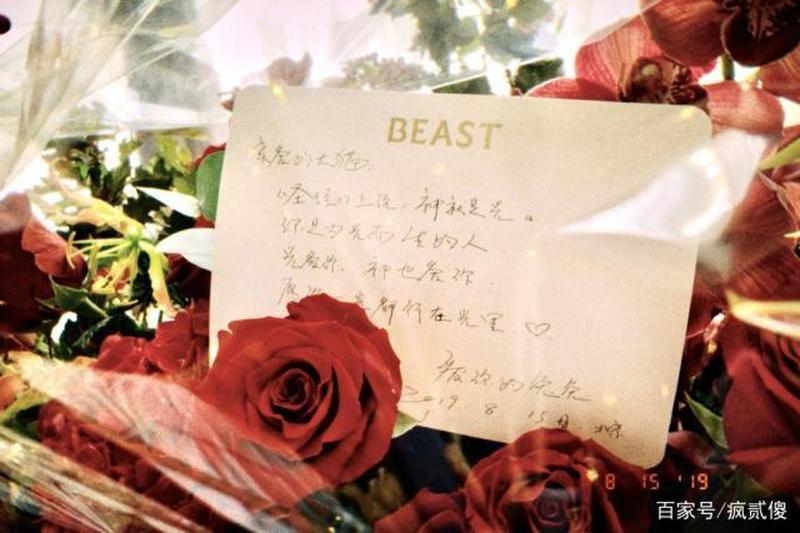 BEAST
亲爱的大猫:
《圣经》上说,神就是光。
你是为光而生的人.
光爱你、神也爱你.
愿 都行在光里 ♡
爱你的
2019 8 15日 北京
8 15 '19
百家号/疯贰傻